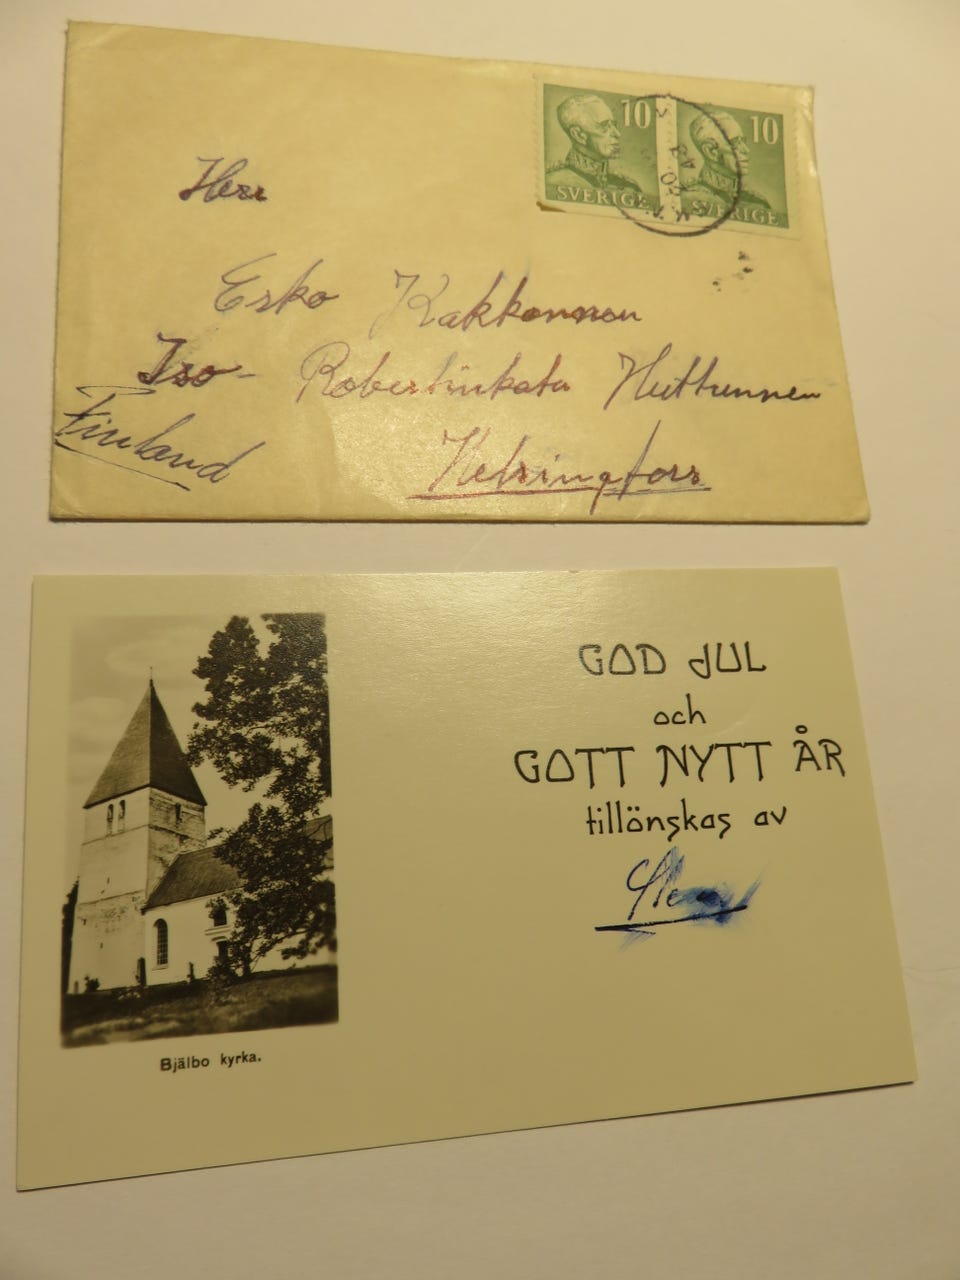 10 10
SVERIGE SVERIGE
Herr
Esko Kakkonnen
Iso- Robertinkatu
Finland
Helsingfors
GOD JUL
och
GOTT NYTT ÅR
tillönskas av
Bjälbo kyrka.